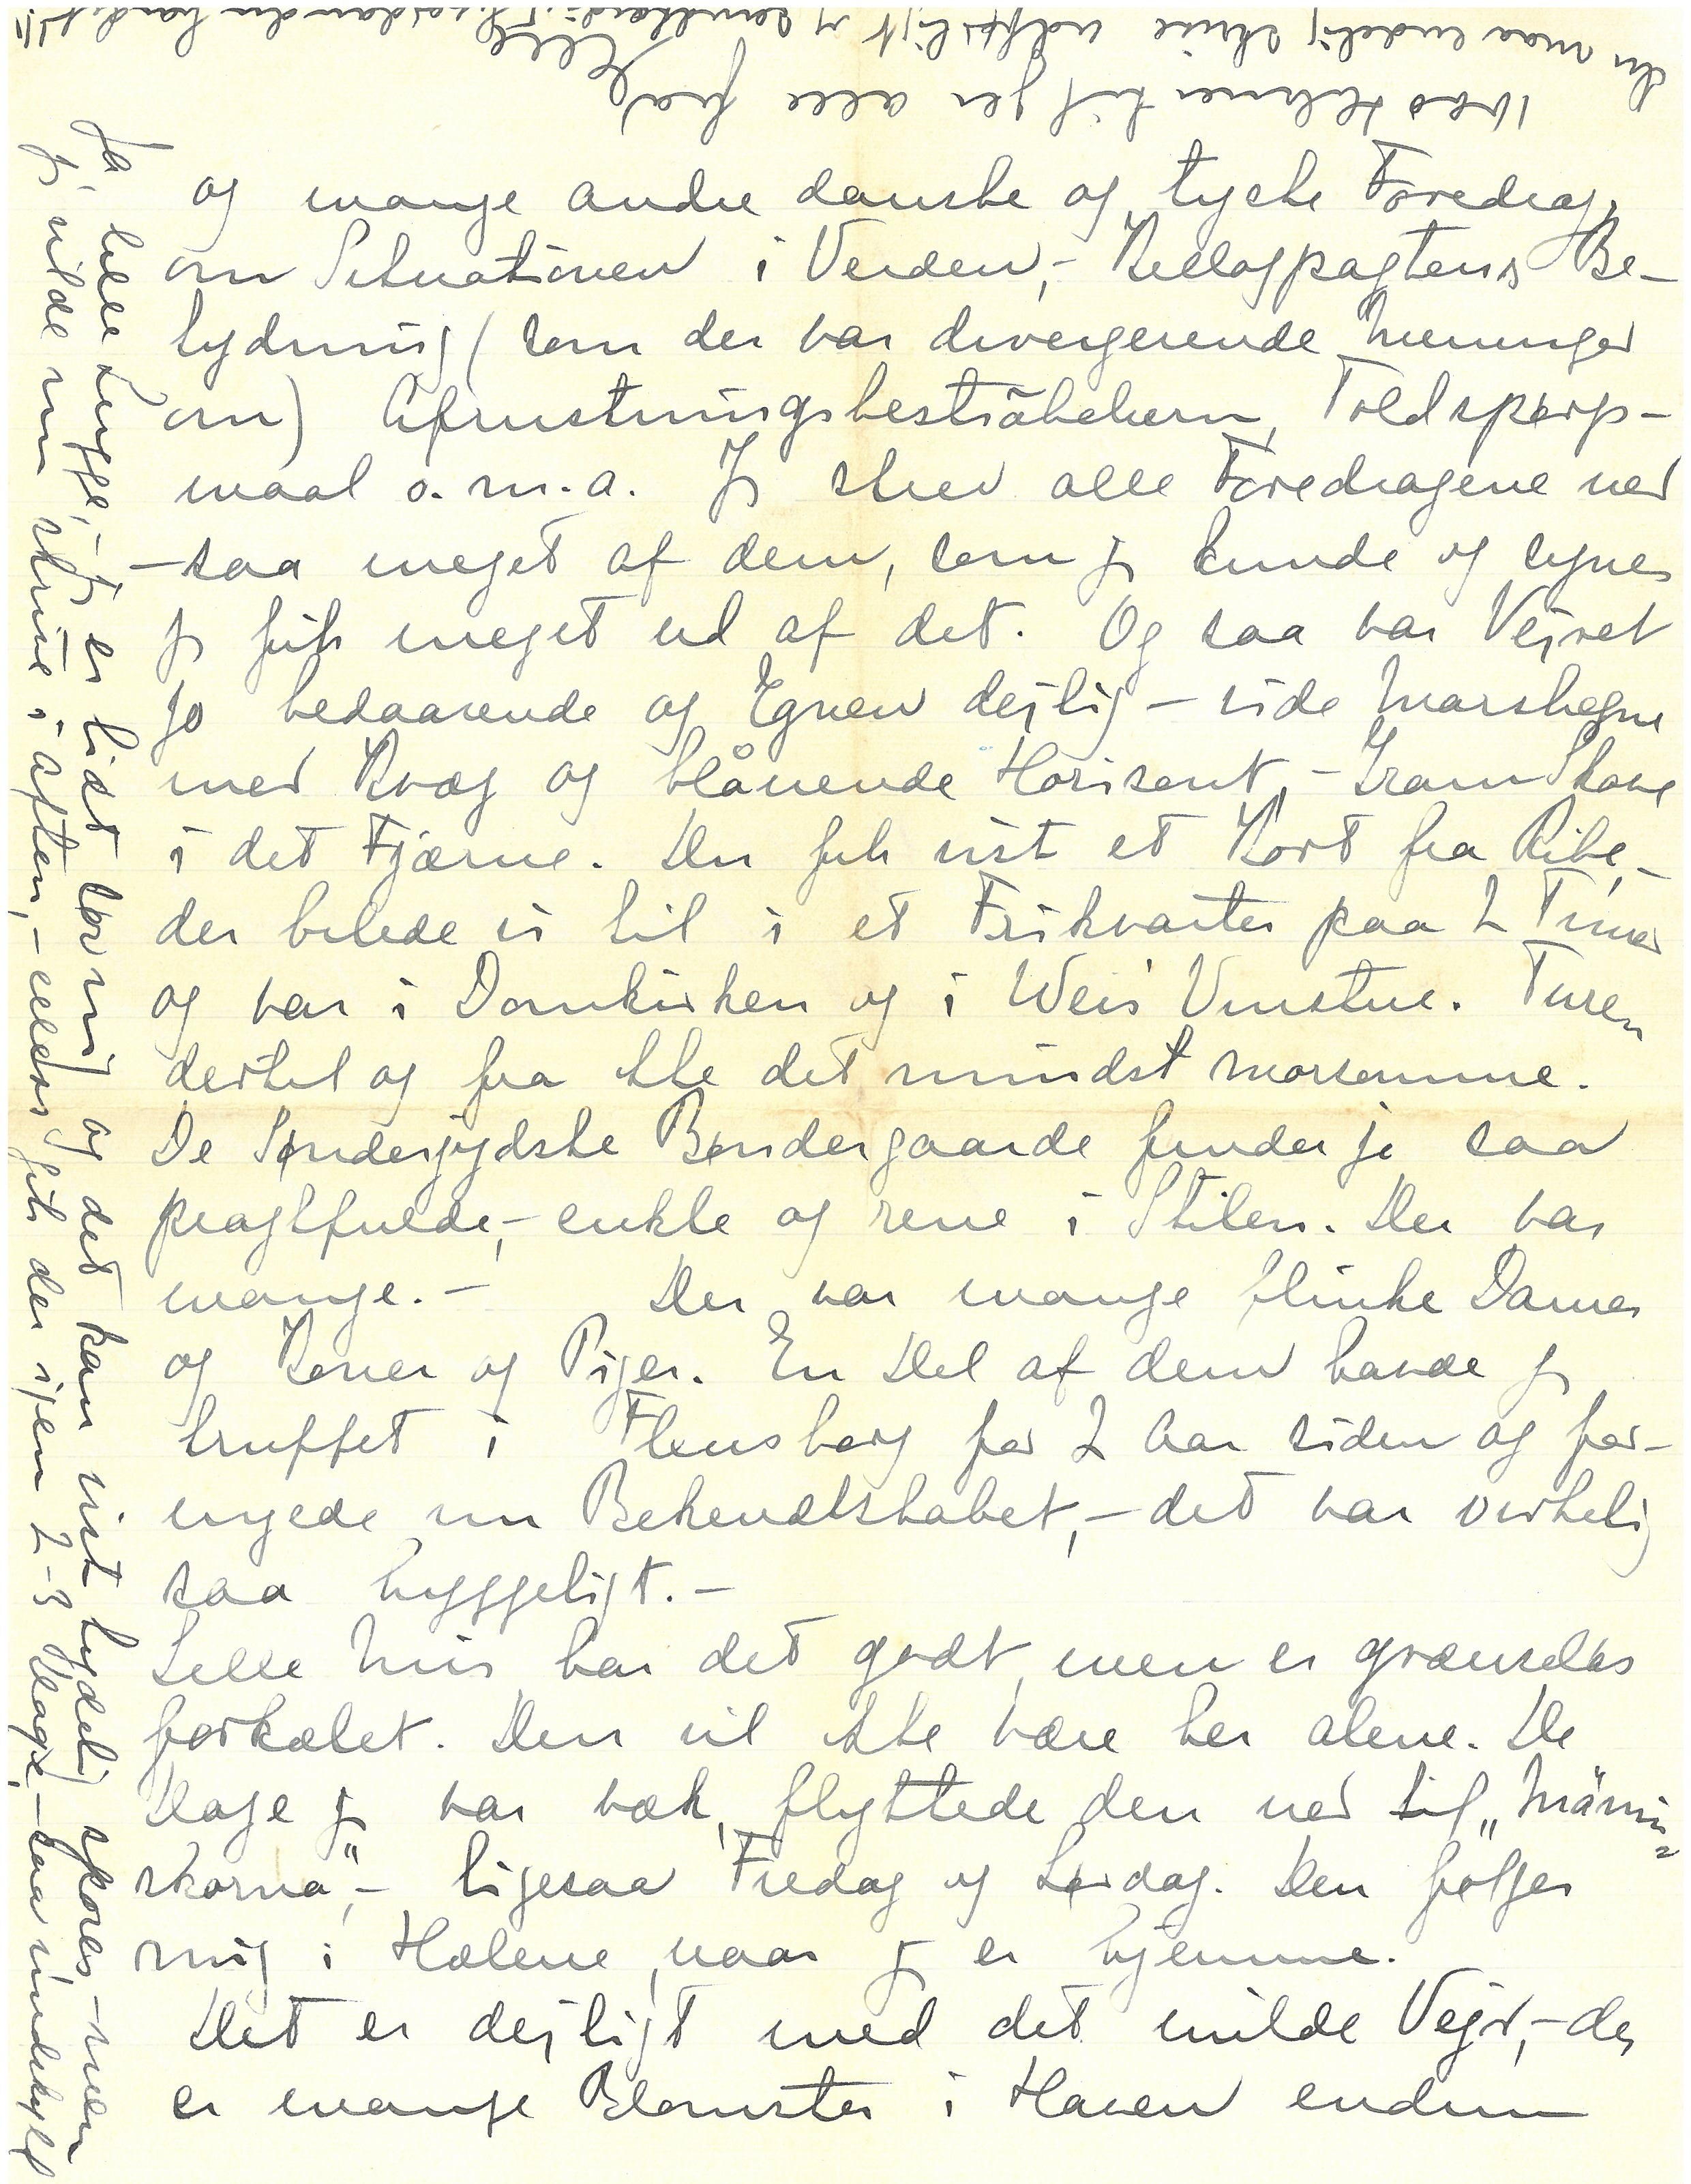 og mange andre danske og tyske Foredrag,
om Situationen i Verden, - Kellogpagtens Be-
tydning (som der var divergerende Meninger
om) Afrustningsbesträbelsern, Toldspørgs-
maal o.m.a. Jg skrev alle Foredragene ned
- saa meget af dem, som jg kunde og synes
jg fik meget ud af det. Og saa var Vejret
jo bedaarende og Egnen dejlig - vide Marskegne
med Kvæg og blånende Horisont, - Gram Skove
i det Fjærne. Du fik vist et Kort fra Ribe, -
der bilede vi til i et Frikvarter paa 2 Timer
og var i Domkirken og i Weis' Vinstue. Turen
dertil og fra ikke det mindst morsomme.
De Sønderjydske Bøndergaarde finder jg saa
pragtfulde, - enkle og rene i Stilen. Der var
mange. - Der var mange flinke Damer
og Koner og Piger. En Del af dem havde jg
truffet i Flensborg for 2 Aar siden og for-
nyede nu Bekendtskabet, - det var virkelig
saa hyggeligt. -
Lille Mis har det godt, men er grænseløs
forkælet. Den vil ikke være her alene. De
Dage jg var væk, flyttede den ned til "Männi-
skorna", - ligesaa Fredag og Lørdag. Den følger
mig i Hælene, naar jg er hjemme.
Det er dejligt med det milde Vejr, - der
er mange Blomster i Haven endnu
Ja lille Lugge, - jg er lidt søvnig og det kan vist tydelig spores, - men
jg vilde nu skrive i Aften, - ellers gik der igen 2-3 Dage, - saa undskyld
1000 Hilsner til jer alle fra
Elle
Du maa endelig skrive udførligt og hvordan du har det!!